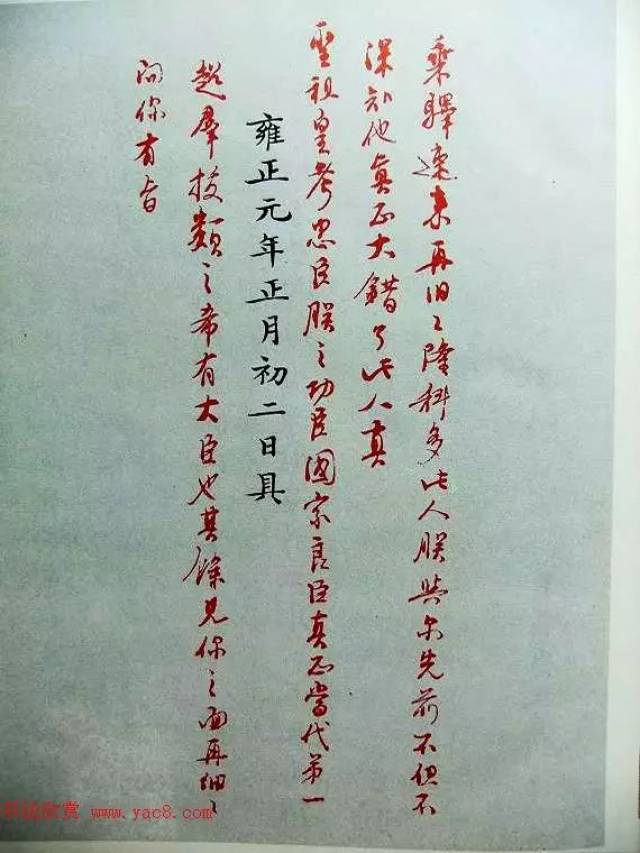 乘驛速來再旧〻隆科多此人朕與尔先前不但不
深知他真正大錯了此人真
聖祖皇考忠臣朕之功臣國家良臣真正當代第一
雍正元年正月初二日具
超羣拔類之希有大臣也其餘見你之面再細〻
问你有旨
书法欣赏 www.yac8.com